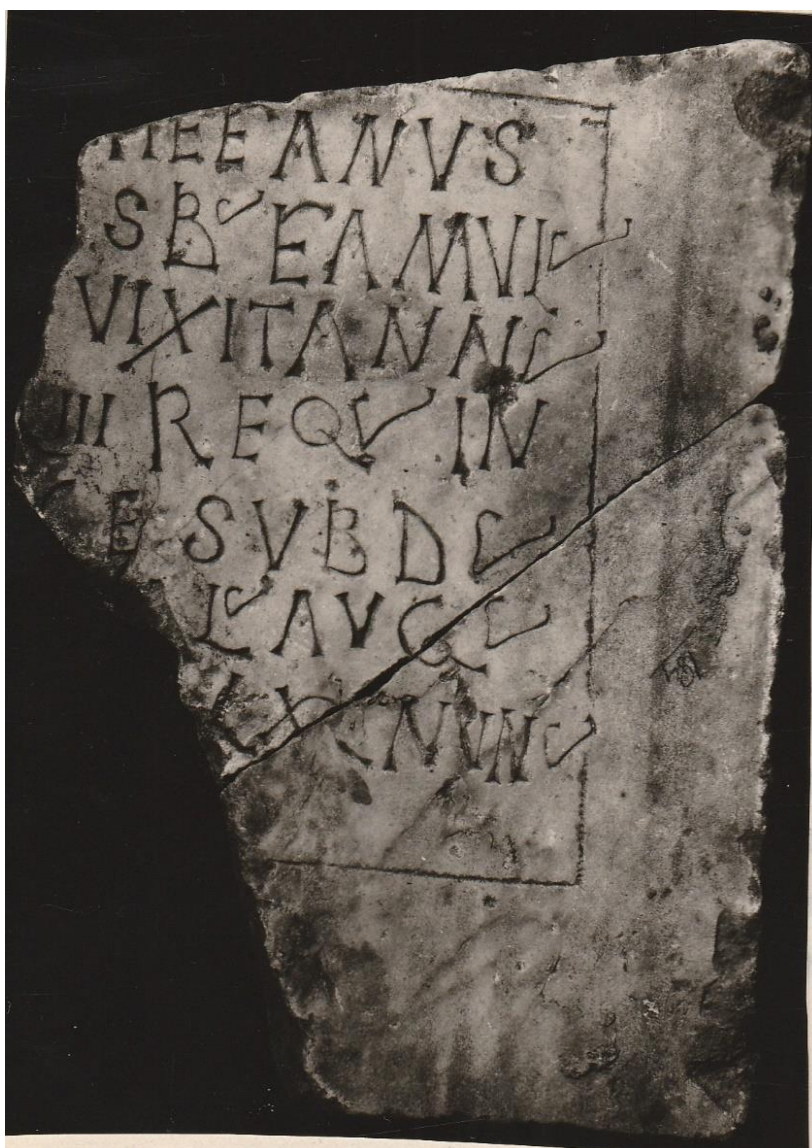 TEFANVS
SB FAMVL
VIXIT ANNS
III REQV IN
CE SVB D
L AVG
NVN